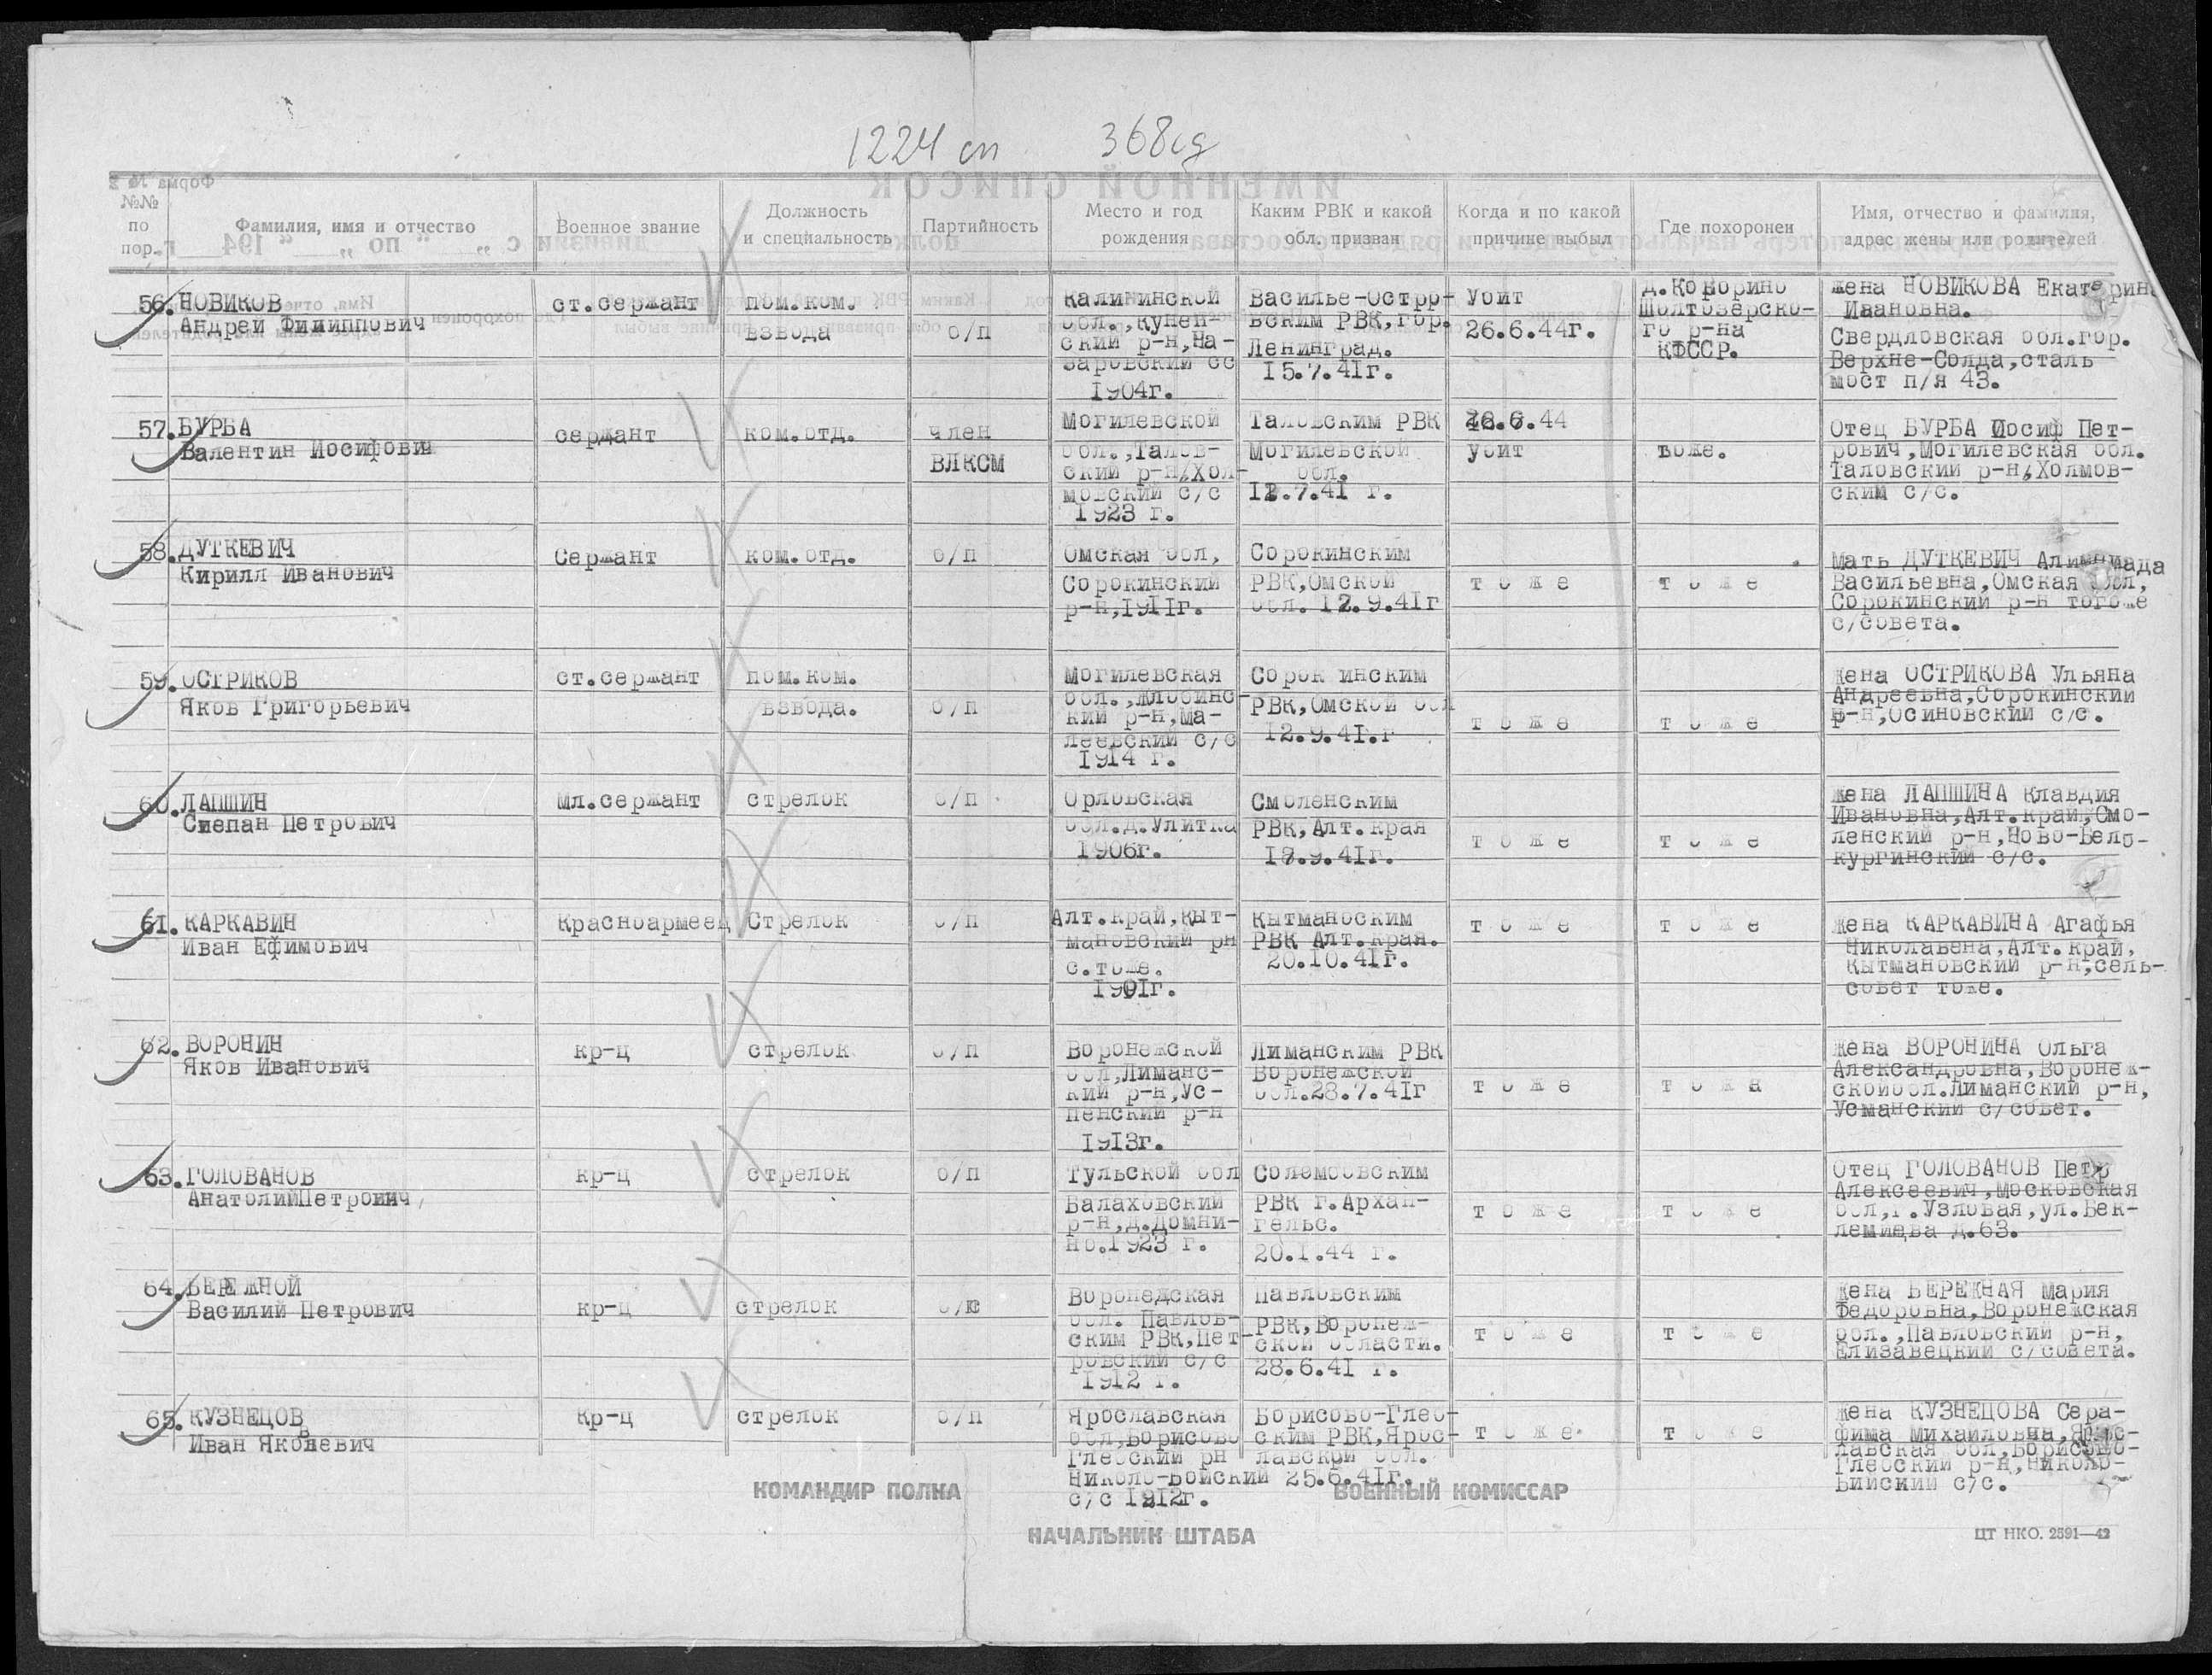 1224 сп 368сд
№№ по пор.
Фамилия, имя и отчество
Военное звание
Должность и специальность
Партийность
Место и год рождения
Каким РВК и какой обл. призван
Когда и по какой причине выбыл
Где похоронен
Имя, отчество и фамилия, адрес жены или родителей
56. НОВИКОВ
Андрей Филиппович
ст.сержант
пом.ком.
взвода
б/п
Калининской
обл.,Кунен-
ский р-н,На-
заровский сс
1904г.
Василье-Остро-
вским РВК,гор.
Ленинград.
15.7.41г.
Убит
26.6.44г.
д.Коворино
Шолтозерско-
го р-на
КФССР.
жена НОВИКОВА Екатерина
Ивановна.
Свердловская обл.гор.
Верхне-Солда,сталь
мост п/я 43.
57. БУРБА
Валентин Иосифович
сержант
ком.отд.
член
ВЛКСМ
Могилевской
обл.,Талов-
ский р-н,Хол-
мовский с/с
1923 г.
Таловским РВК
Могилевской
обл.
12.7.41 г.
26.6.44
убит
тоже.
Отец БУРБА Иосиф Пет-
рович,Могилевская обл.
Таловский р-н,Холмов-
ским с/с.
58. ДУТКЕВИЧ
Кирилл Иванович
Сержант
ком.отд.
б/п
Омская обл,
Сорокинский
р-н,1911г.
Сорокинским
РВК,Омской
обл. 12.9.41г
т о ж е
т о ж е
Мать ДУТКЕВИЧ
Васильевна,Омская обл,
Сорокинский р-н тогоже
с/совета.
59. ОСТРИКОВ
Яков Григорьевич
ст.сержант
пом.ком.
взвода.
б/п
Могилевская
обл.,Жлобинс-
кий р-н,Ма-
леевский с/с
1914 г.
Сорок инским
РВК,Омской обл
12.9.41.г
т о ж е
т о ж е
жена ОСТРИКОВА Ульяна
Андреевна,Сорокинский
р-н,Осиновский с/с.
60. ЛАПШИН
Степан Петрович
мл.сержант
стрелок
б/п
Орловская
обл.д.Улитка
1906г.
Смоленским
РВК,Алт.края
18.9.41г.
т о ж е
т о ж е
жена ЛАПШИНА Клавдия
Ивановна,Алт.край,Смо-
ленский р-н,Ново-Бело-
кургинский с/с.
61. КАРКАВИН
Иван Ефимович
Красноармеец
Стрелок
б/п
Алт.край,Кыт-
мановский рн
с.тоже.
1901г.
Кытмановским
РВК Алт.края.
20.10.41г.
т о ж е
т о ж е
жена КАРКАВИНА Агафья
Николавена,Алт.край,
Кытмановский р-н,сель-
совет тоже.
62. ВОРОНИН
Яков Иванович
кр-ц
стрелок
б/п
Воронежской
обл,Лиманс-
кий р-н,Ус-
пенский р-н
1913г.
Лиманским РВК
Воронежской
обл.28.7.41г
т о ж е
т о ж а
жена ВОРОНИНА Ольга
Александровна,Воронеж-
скойобл.Лиманский р-н,
Усманский с/совет.
63. ГОЛОВАНОВ
АнатолийПетрович
кр-ц
стрелок
б/п
Тульской обл
Балаховский
р-н,д.Домни-
но.1923 г.
Соломбовским
РВК г.Архан-
гельс.
20.1.44 г.
т о ж е
т о ж е
Отец ГОЛОВАНОВ Петр
Алексеевич,Московская
обл,г.Узловая,ул.Бек-
лемищева д.63.
64. БЕРЕЖНОЙ
Василий Петрович
кр-ц
стрелок
Воронедская
обл. Павлов-
ским РВК,Пет-
ровский с/с
1912 г.
Павловским
РВК,Воронеж-
ской области.
28.6.41 г.
т о ж е
т о ж е
жена БЕРЕЖНАЯ Мария
Федоровна,Воронежская
обл.,Павловский р-н,
Елизавецкий с/совета.
65. КУЗНЕЦОВ
Иван Яковлевич
кр-ц
стрелок
б/п
Ярославская
обл,Борисово
Глебский рн
Николо-Бойский
с/с 1912г.
Борисово-Глеб-
ским РВК,Ярос-
лавской обл.
25.6.41г.
т о ж е
т о ж е
жена КУЗНЕЦОВА Сера-
фима Михаиловна,Ярос-
лавская обл,Борисово-
Глебский р-н,Николо-
Бийский с/с.
КОМАНДИР ПОЛКА
ВОЕННЫЙ КОМИССАР
НАЧАЛЬНИК ШТАБА
ЦТ НКО. 2591—42